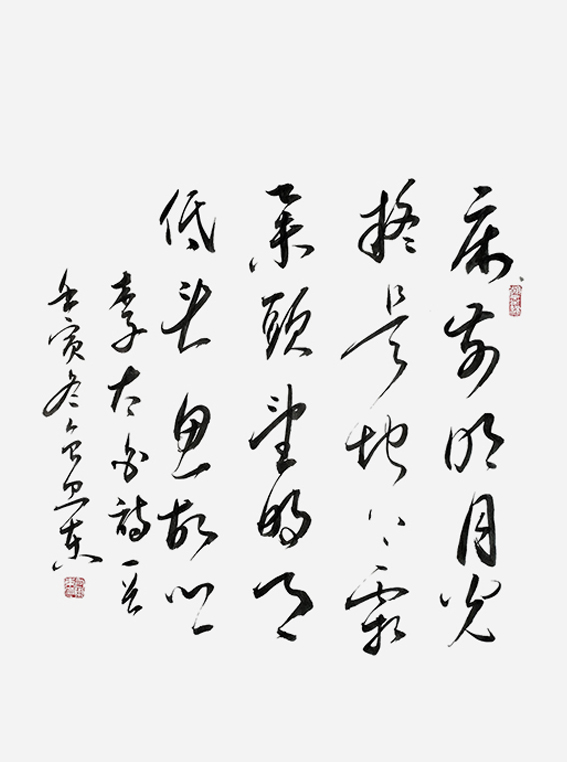 床前明月光
疑是地上霜
举頭望明月
低头思故乡
李太白詩一首
壬寅冬